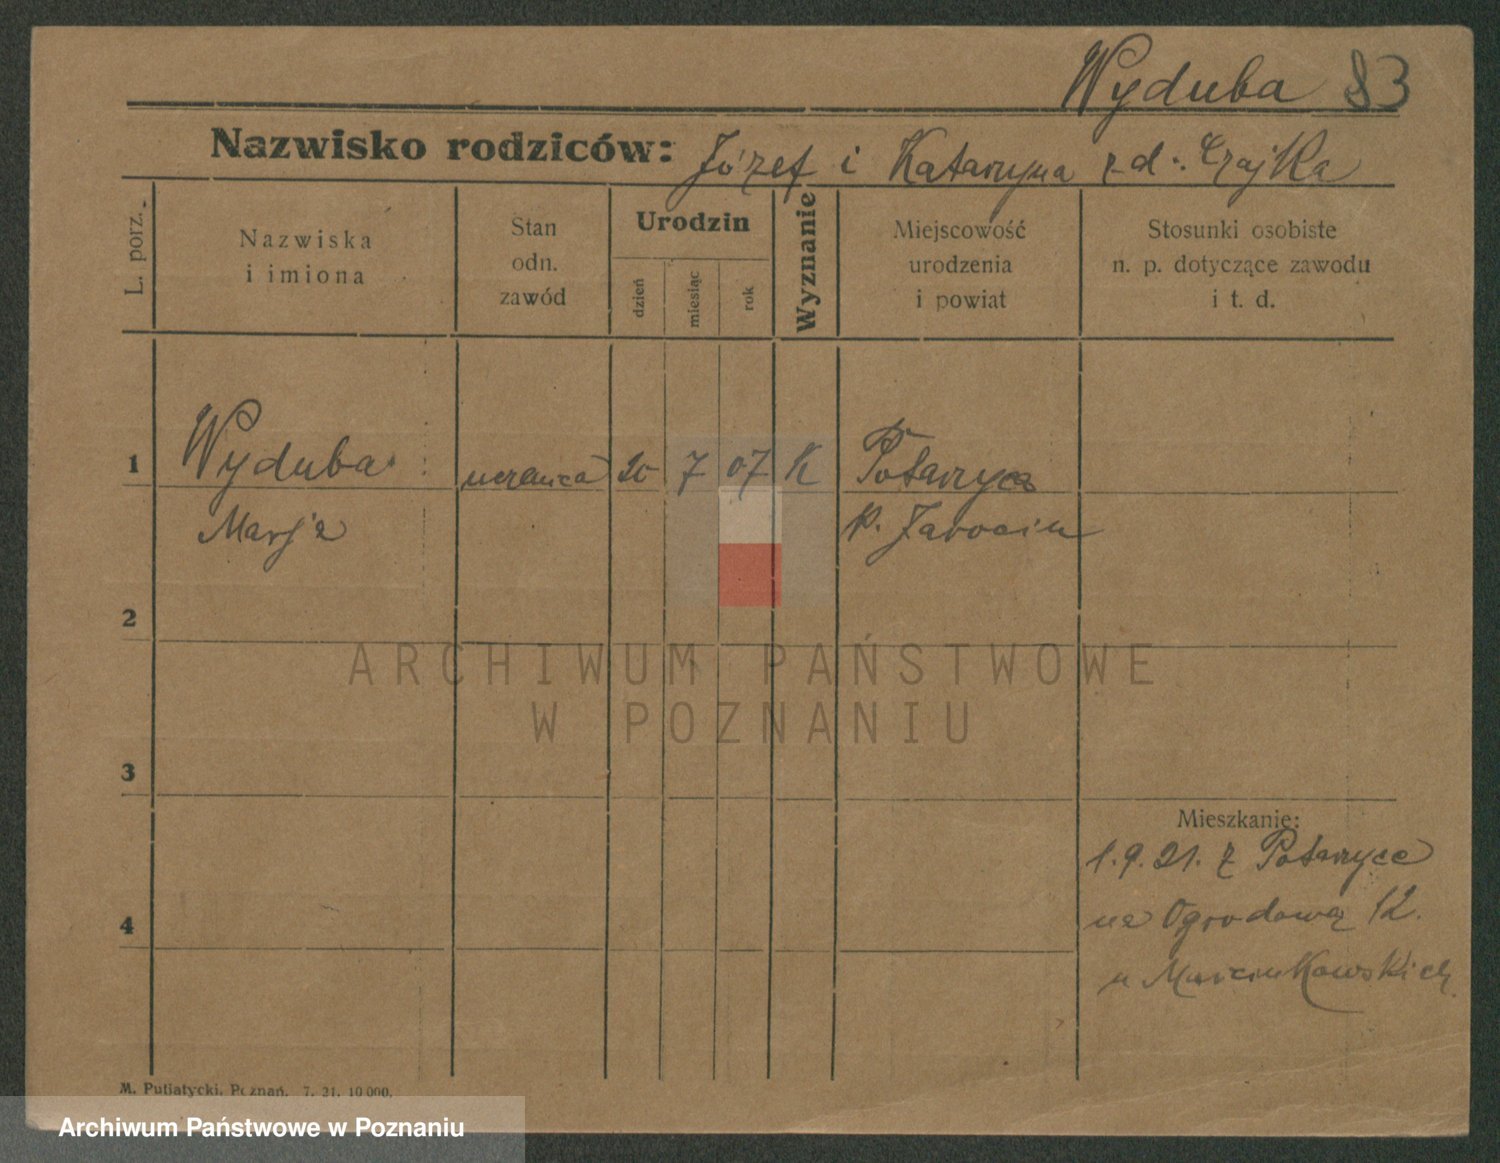 Wyduba 83
Nazwisko rodziców: Józef i Katarzyna z d. Czajka
L. porz.
Nazwiska
i imiona
Stan
odn.
zawód
Urodzin
dzień
miesiąc
rok
Wyznanie
Miejscowość
urodzenia
i powiat
Stosunki osobiste
n. p. dotyczące zawodu
i t. d.
1 Wyduba uczenica 7 07 K Potarzyca
Marja p. Jarocin
2
ARCHIWUM PAŃSTWOWE
W POZNANIU
3
Mieszkanie:
1.9.21. z Potarzyce
na Ogrodową 12.
4
u Marcinkowskich
M. Putiatycki, Poznań. 7. 21. 10 000.
Archiwum Państwowe w Poznaniu